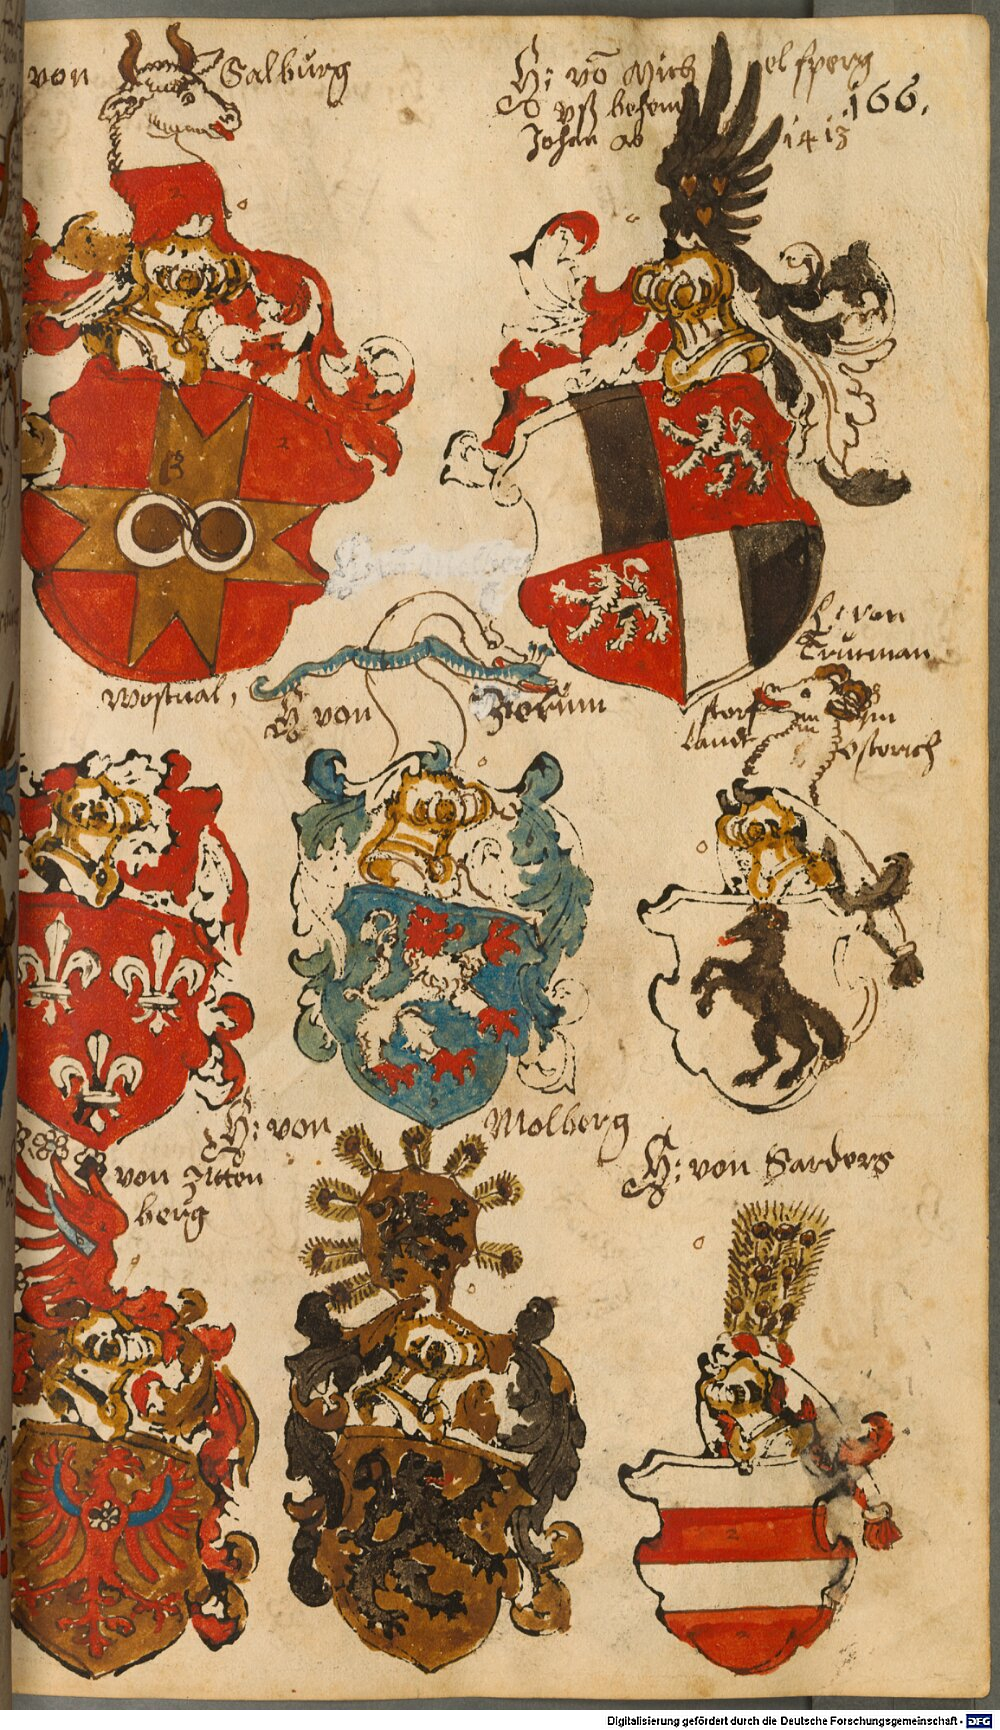 von Salburg
H: vō Mich elsperg
vß behem
Johan 1413
166.
Wostual,
H von Zierünn
Hr von
Trutman
storf im
Landt Osterich
H: von Molberg
von Itten
berg
H: von Sarders
Digitalisierung gefördert durch die Deutsche Forschungsgemeinschaft - DFG